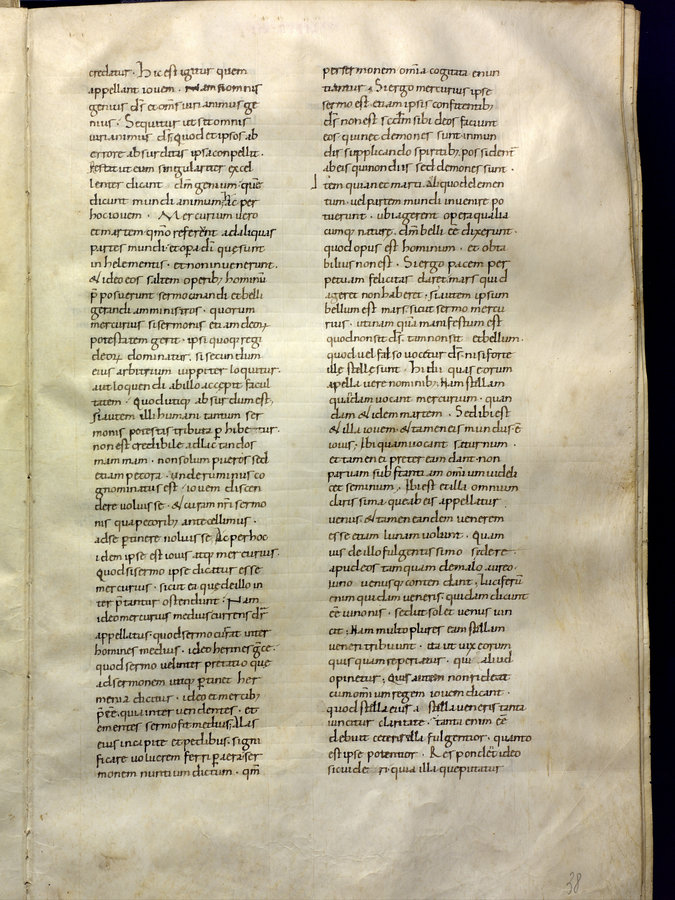 credatur. Hic est igitur quem
appellant iovem. Nam si omnis
genius d̄s et om̄s viri animus ge
nius. Sequitur ut sit omnis
viri animus d̄s. Quod et ipsos ab
errore absurditas ipsa conpellit.
Restat ut eum singulariter excel
lenter dicant d̄m genium. que
dicunt mundi animum. Ac per
hoc iovem. Mercurium vero
et martem. quomo referrent ad aliquas
partes mundi et opera di que sunt
in helementis. et non invenerunt.
& ideo eos saltem operib; hominū
p̄posuerunt sermocinandi et belli
gerandi amministros. quorum
mercurius si sermonis etiam deorū
potestatem gerit. ipsi quoq; regi
deorū dominatur. si secundum
eius arbitrium iuppiter loquitur.
aut loquendi ab illo accepit facul
tatem. Quod utiq; absurdum est.
Si autem illi humani tantum ser
monis potestas tributa p̄hibetur.
non est credibile ad lactandos
mammam. non solum pueros sed
etiam pecora. unde ruminus co
gnominatus est. iovem discen
dere voluisse. & curam nr̄i sermo
nis qua pecorib; antecellimus.
ad se p̱tinere noluisse. Ac per hoc
idem ipse est iovis atq; mercurius.
Quod si sermo ipse dicatur esse
mercurius. sicut ea que de illo in
terp̄tantur ostendunt. Nam
ideo mercurius medius currens dr̄
appellatus. quod sermo currat inter
homines medius. ideo hermes gr̄ce.
quod sermo vel interpretatio que
ad sermonem utiq; p̱tinet her
menia dicitur. ideo et mercib;
p̄ēē. quia inter vendentes. et
ementes sermo fit medius. Alas
eius in capite et pedibus. signi
ficare volucrem ferri p̱ aera ser
monem nuntium dictum. qm̄
per sermonem omnia cogitata enun
tiantur. Si ergo mercurius ipse
sermo est. etiam ipsis confitentib;
d̄s non est. Sed cum sibi deos faciunt
eos qui nec demones sunt inmun
dis supplicando spiritib; possident̄
ab eis qui non dii sed demones sunt.
Item quia nec marti. aliquod elemen
tum. vel partem mundi invenire po
tuerunt. ubi agerent opera qualia
cumq; nature. d̄m belli ēē dixerunt.
quod opus est hominum. et obta
bilius non est. Si ergo pacem per
petuam felicitas daret. mars quid
ageret non haberet. si autem ipsum
bellum est mars. sicut sermo mercu
rius. utinam quā manifestum est
quod non sit d̄s. tam non sit et bellum.
quod vel falso vocetur d̄s. nisi forte
ille stelle sunt. hi dii quas eorum
apellavere nominib;. Nam stellam
quandam vocant mercurium. quan
dam & idem martem. Sed ibi est
& illa iovem. & tamen eis mundus ē
iovis. Ibi quam vocant saturnum.
et tamen ei preterea dant non
parvam substantiam omnium videli
cet seminum. Ibi est et illa omnium
clarissima que ab eis appellatur
venus. & tamen eandem venerem
esse etiam lunam volunt. Quam
vis de illo fulgentissimo sidere.
apud eos tamquam de malo aureo.
iuno venusq; contendant. Luciferū
enim quidam veneris. quidam dicunt
ēē iunonis. sed ut solet venus vin
cit. Nam multo plures eam stellam
veneri tribuunt. ita ut vix eorum
quisquam reperiatur. qui aliud
opinetur. Quis autem non rideat
cum omnium regem iovem dicant.
quod stella eius a stella veneris tanta
vincitur claritate. tanta enim ēē
debuit ceteris illa fulgentior. quanto
est ipse potentior. Respondet ideo
sic videri quia illa que putatur
38